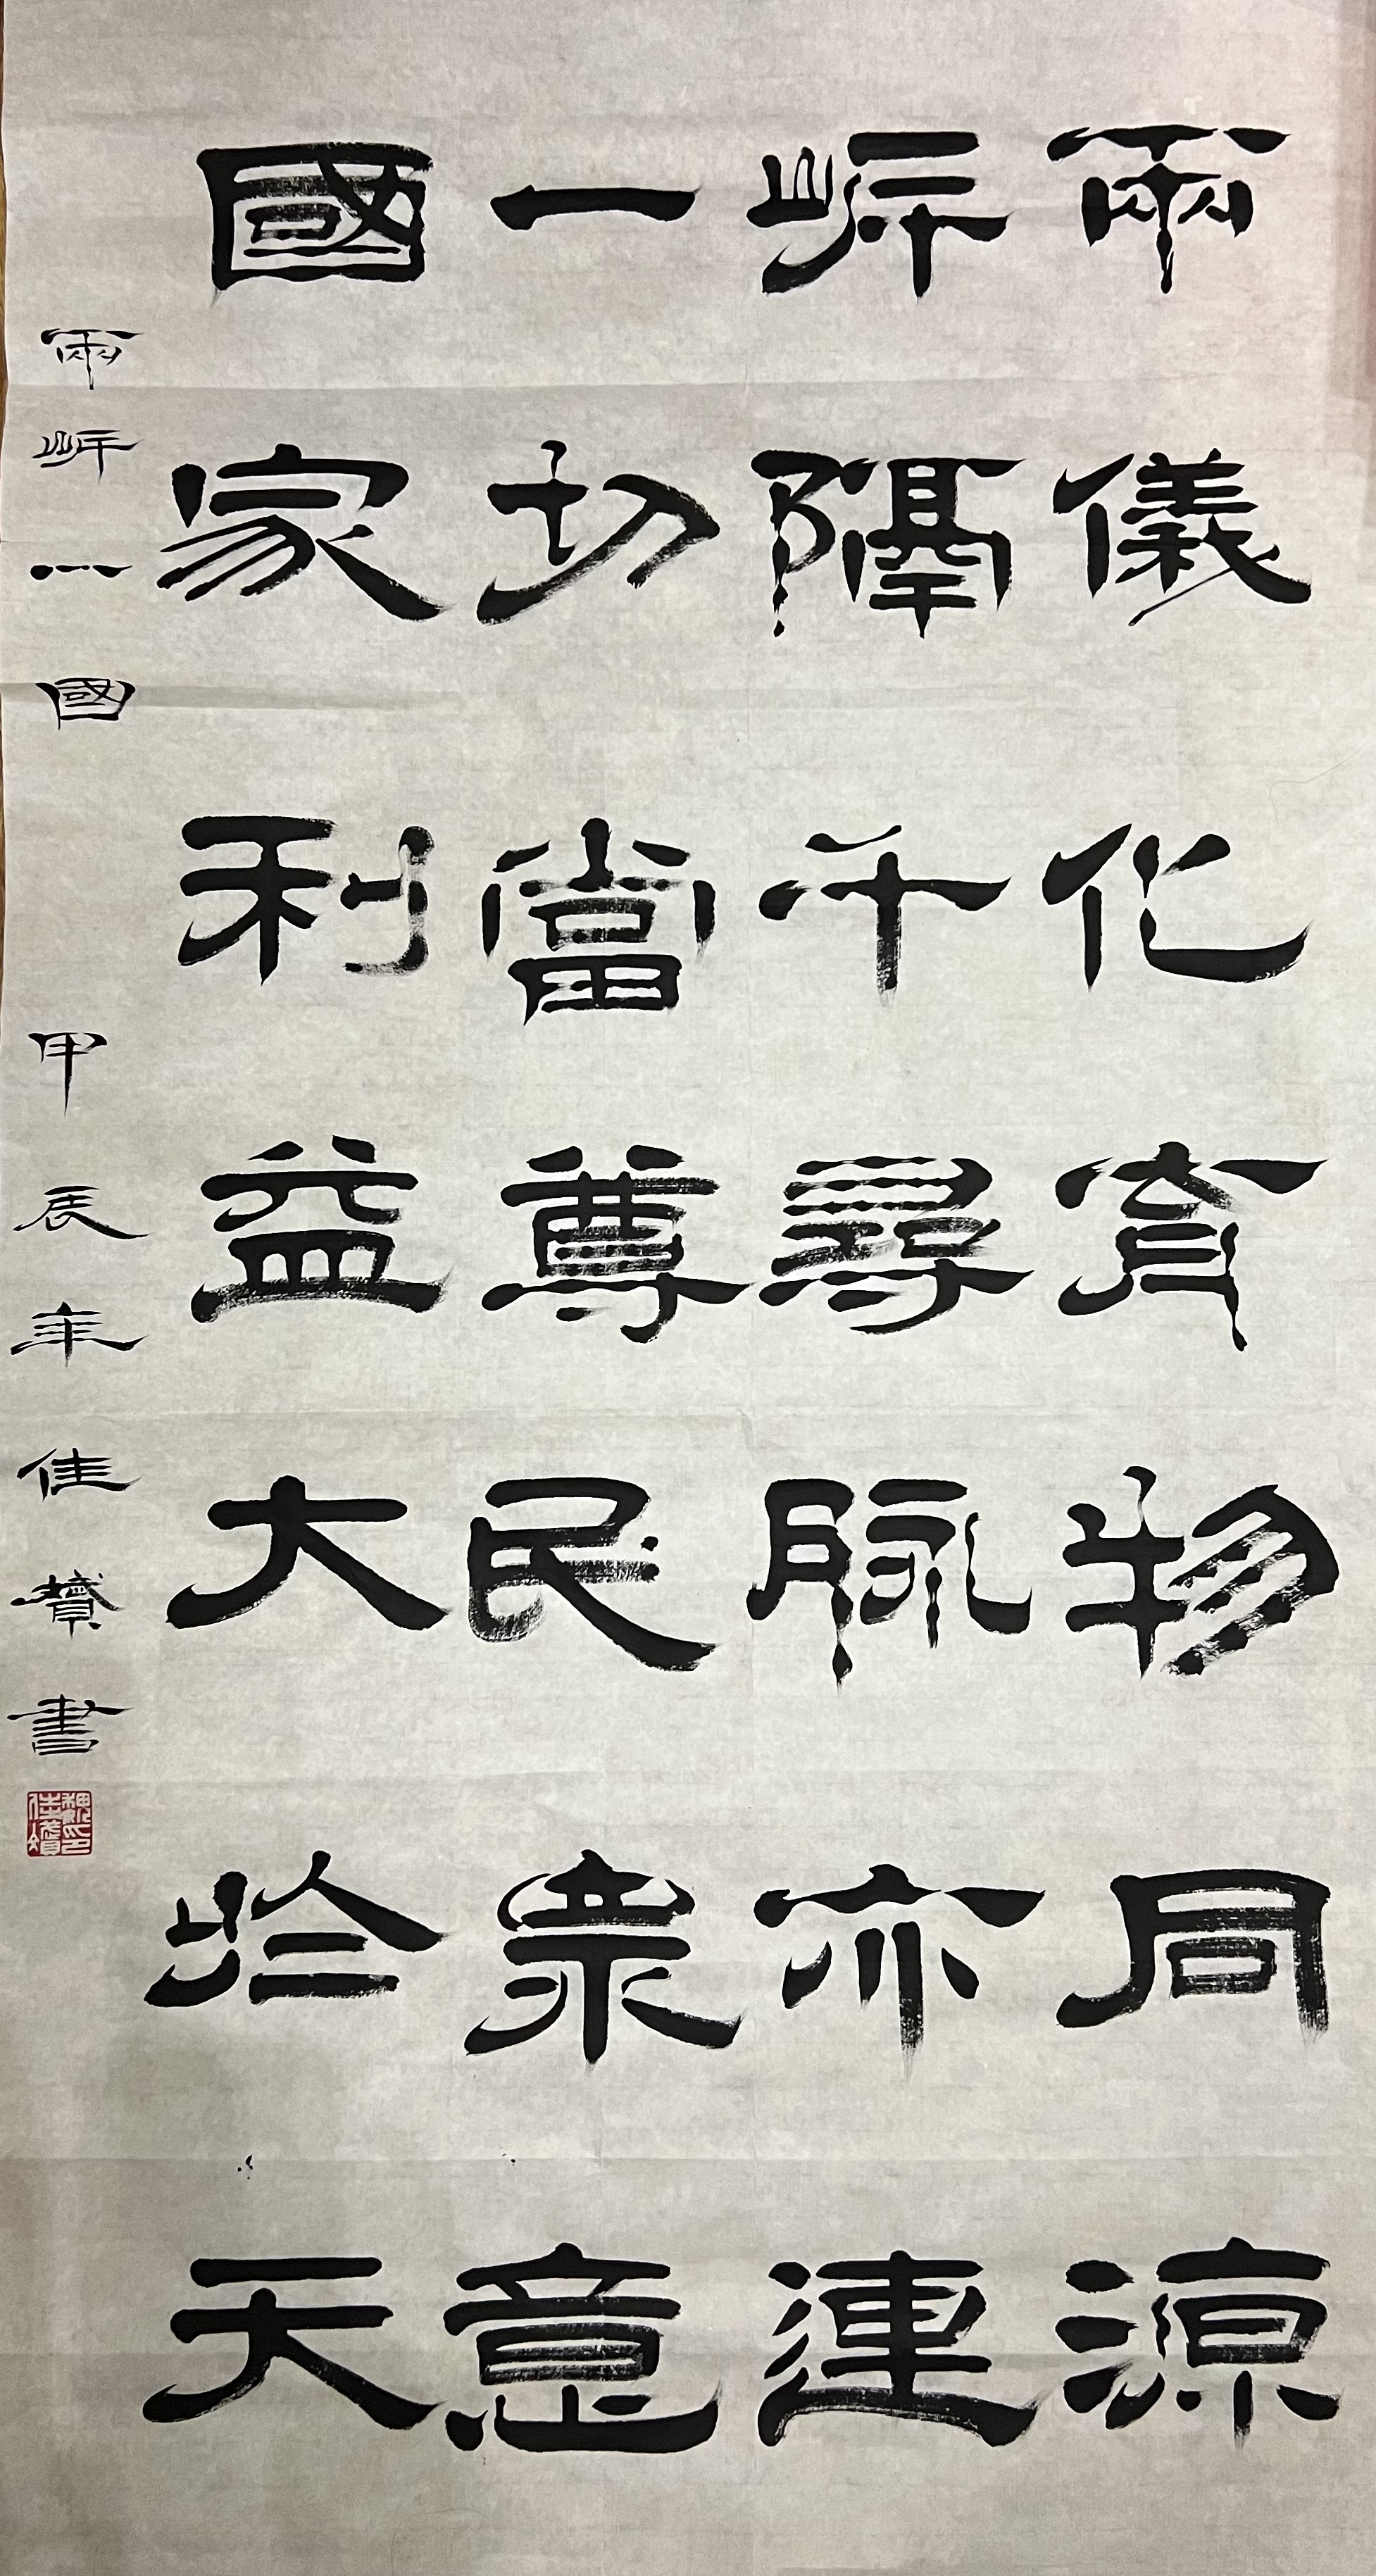 兩儀化育物同源
岸隔千尋脉亦連
一切當尊民眾意
國家利益大於天
兩岸一國 甲辰年佳贊書